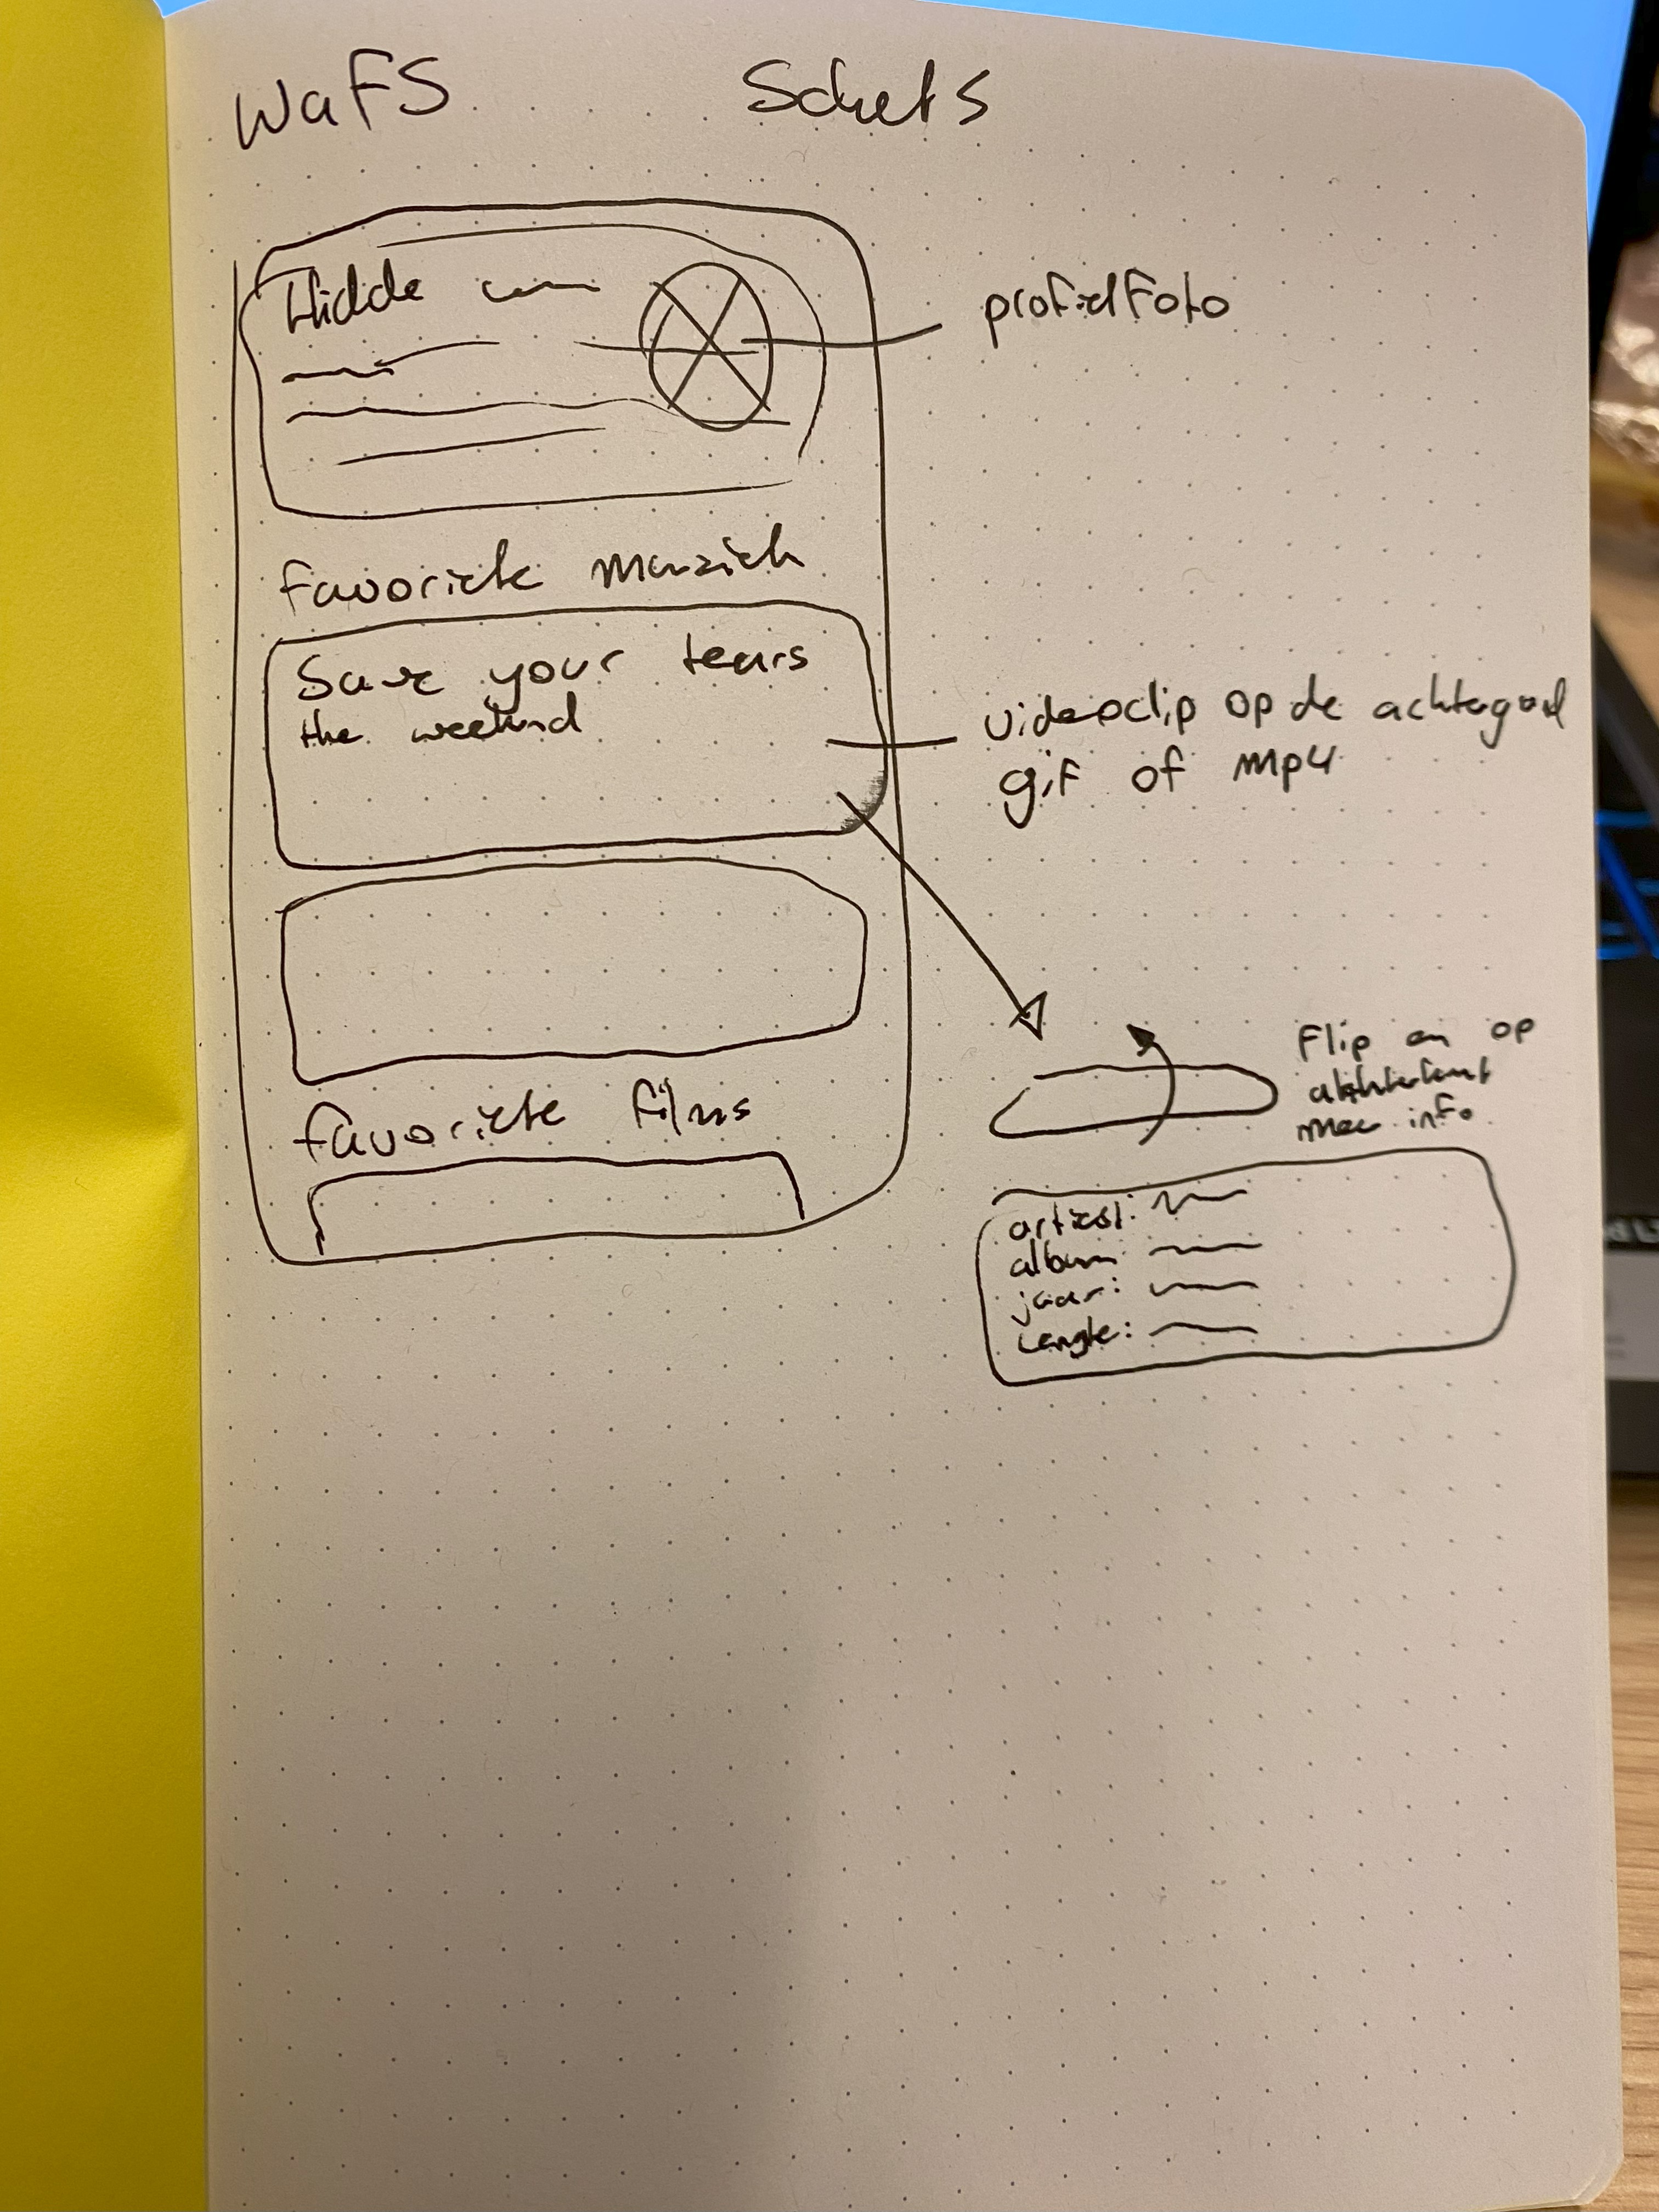 WaFS Schets
Hidde
profielfoto
favoriete muziek
Save your tears
the weeknd
videoclip op de achtergrond
gif of mp4
Flip en op
achterkant
meer info
favoriete films
artiest:
album:
jaar:
Lengte: